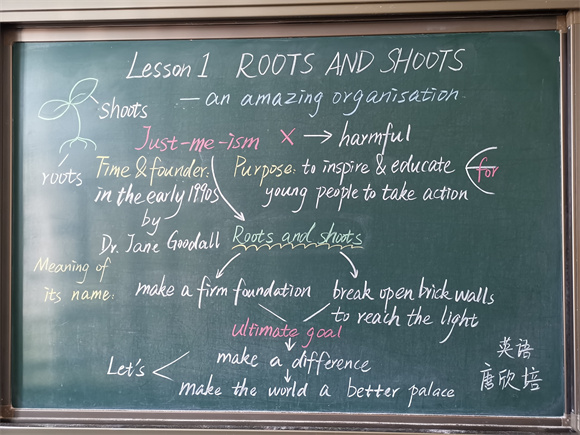 Lesson 1 ROOTS AND SHOOTS
shoots
— an amazing organisation
Just-me-ism × → harmful
roots
Time & founder:
in the early 1990s
by
Dr. Jane Goodall
Purpose: to inspire & educate
young people to take action
for
Roots and shoots
Meaning of
its name:
make a firm foundation
break open brick walls
to reach the light
ultimate goal
Let's
make a difference
make the world a better palace
英语
唐欣培